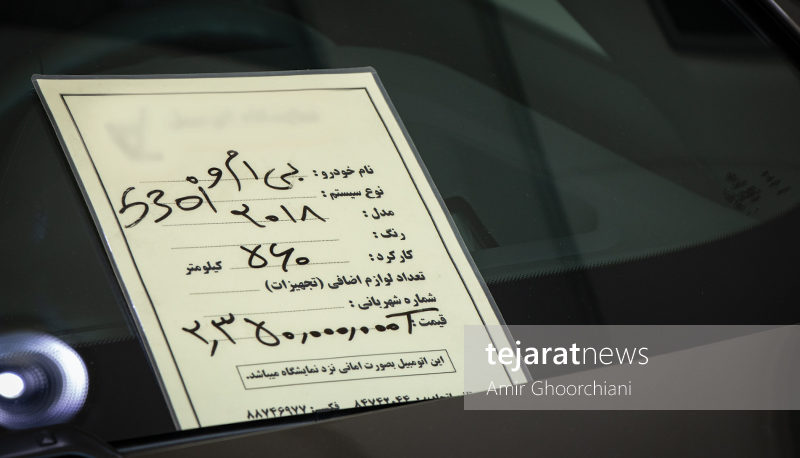 نام خودرو: بی ام و
نوع سیستم: 530i
مدل: ۲۰۱۸
رنگ:
کارکرد: ۷۶۰ کیلومتر
تعداد لوازم اضافی (تجهیزات)
شماره شهربانی:
قیمت: ۲,۳۷۰,۰۰۰,۰۰۰ T
این اتومبیل بصورت امانی نزد نمایشگاه میباشد.
۸۴۷۴۲۰۴۴ فکس: ۸۸۷۴۶۹۷۷
tejaratnews
Amir Ghoorchiani